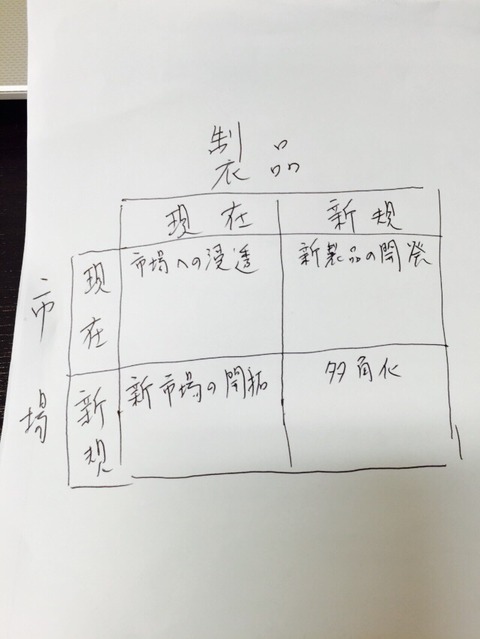 製品
現在 新規
市場
現在
市場への浸透 新製品の開発
新規
新市場の開拓 多角化